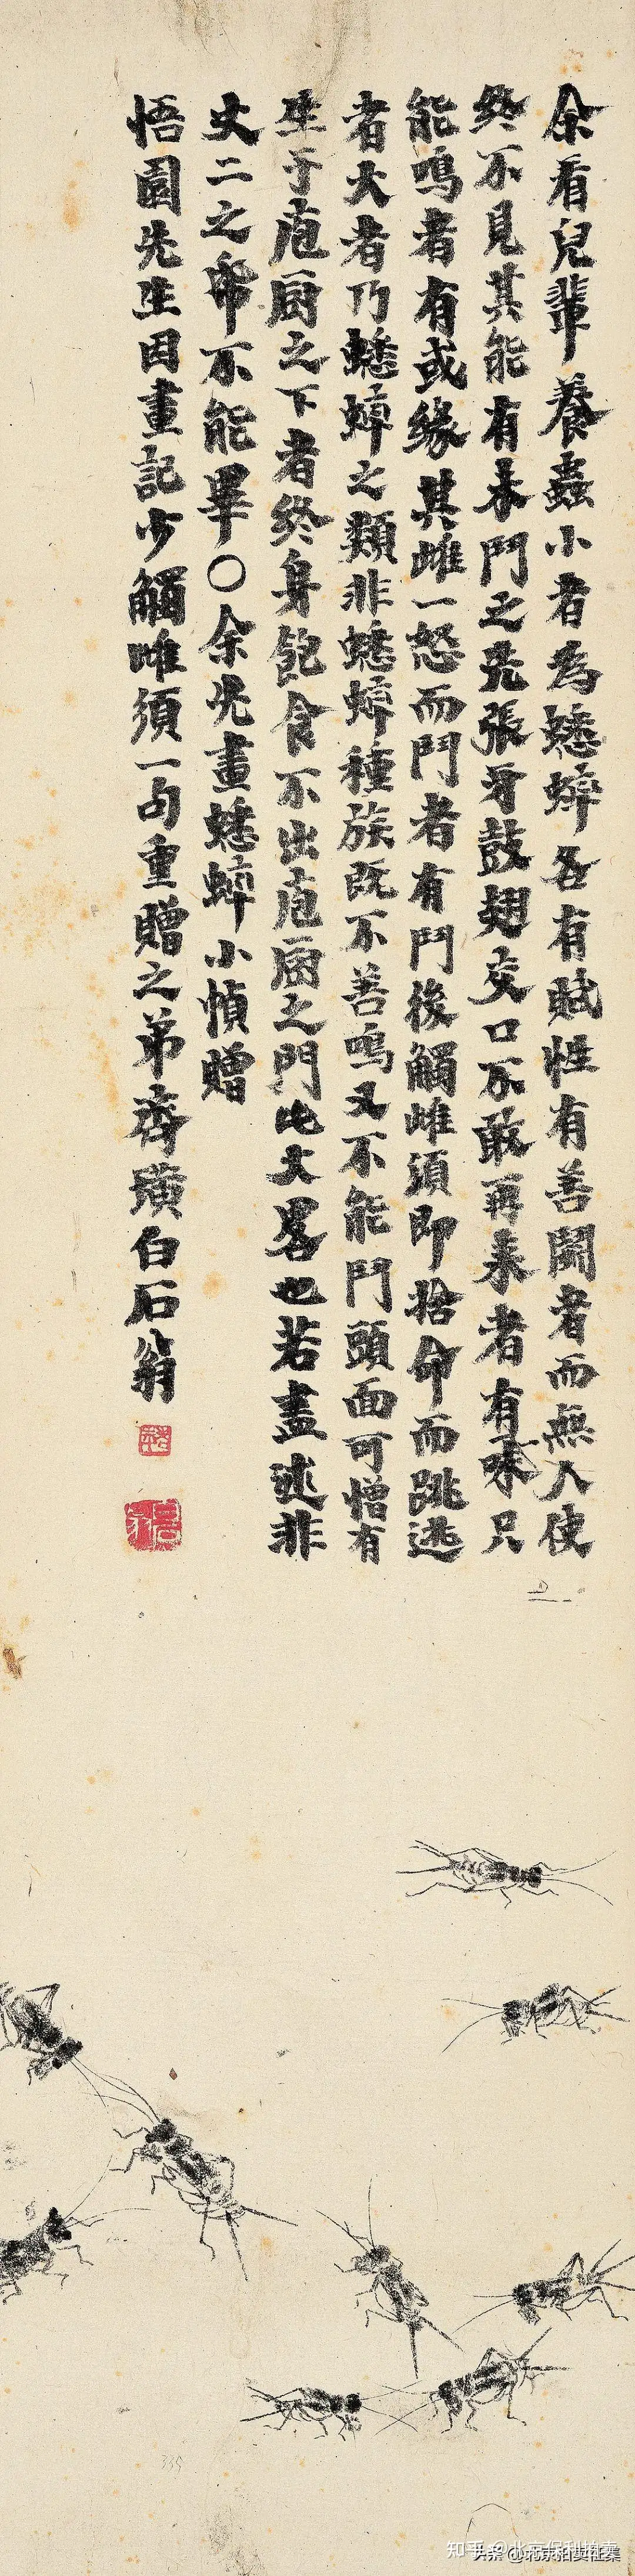 余看兒輩養蟲小者為蟋蟀各有賦性有善鬭者而無人使
終不見其能有未鬥之先張牙鼓翅交口不敢再來者有味只
能鳴者有或緣其雌一怒而鬥者有鬥後觸雌須即捨命而跳逃
者大者乃蟋蟀之類非蟋蟀種族既不善鳴又不能鬥頭面可憎有
生于庖厨之下者終身飽食不出庖厨之門此大畧也若盡述非
丈二之帋不能畢○余先畫蟋蟀小幀贈
悟園先生因畫記少觸雌須一句重贈之弟齊璜白石翁
339
知乎 @北京保利拍卖
头条 @北京拍卖征集